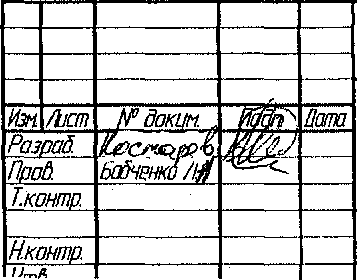 Изм. Лист № докум. Подп. Дата
Разраб. Костаров
Пров. Бабченко
Т.контр.
Н.контр.
Утв.